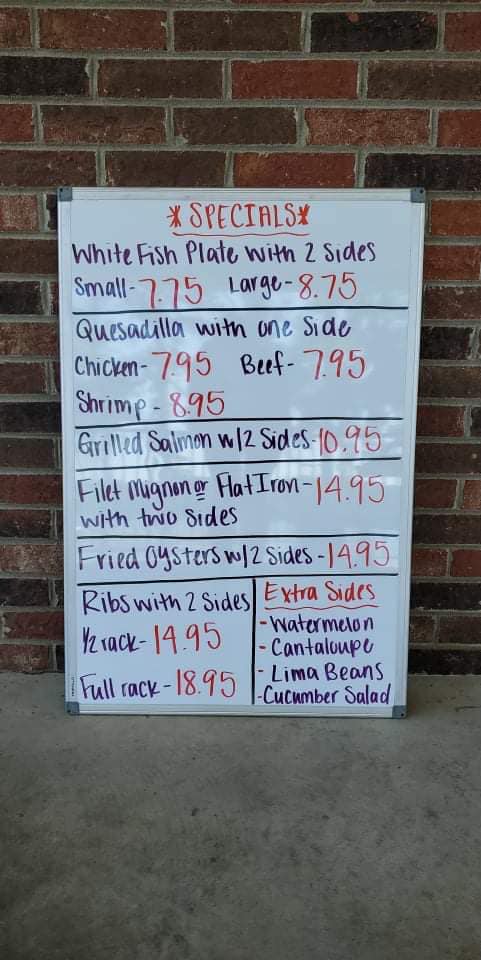 *SPECIALS*
White Fish Plate with 2 Sides
Small-7.75 Large-8.75
Quesadilla with one Side
Chicken-7.95 Beef-7.95
Shrimp-8.95
Grilled Salmon w/2 Sides-10.95
Filet Mignon or Flat Iron-14.95
with two Sides
Fried Oysters w/2 Sides-14.95
Ribs with 2 Sides
1/2 rack-14.95
Full rack-18.95
Extra Sides
-Watermelon
-Cantaloupe
-Lima Beans
-Cucumber Salad